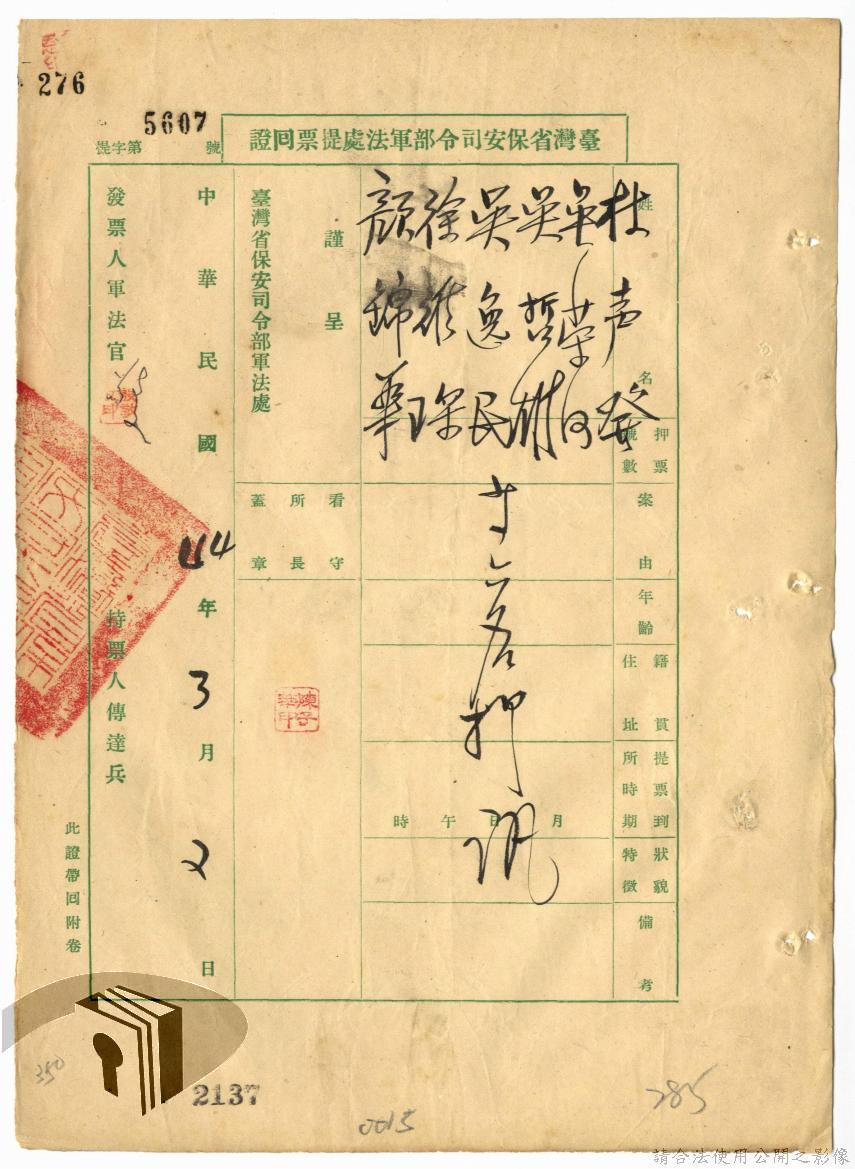 276
5607
提字第 號
臺灣省保安司令部軍法處提票回證
姓名
杜声發
吳哲
吳逸民
徐維琛
顏錦華
押票號數
案由
年齡
籍貫住址
提票到所時期
月 日 午 時
狀貌特徵
備考
押訊
謹呈
臺灣省保安司令部軍法處
看守所長蓋章
中華民國44年3月2日
發票人軍法官
持票人傳達兵
此證帶回附卷
350
2137
0015
285
請合法使用公開之影像